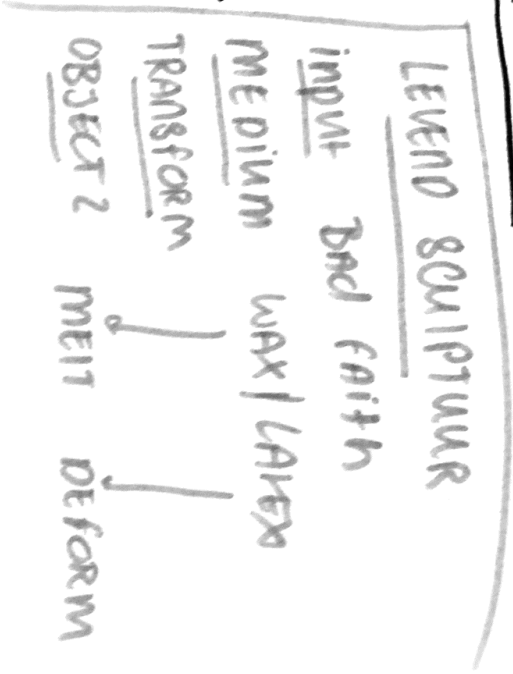 LEVEND SCULPTUUR
input BAd fAith
MEDium WAX/LATEX
TRANSfORM
OBJECT 2 MElT DEfORM